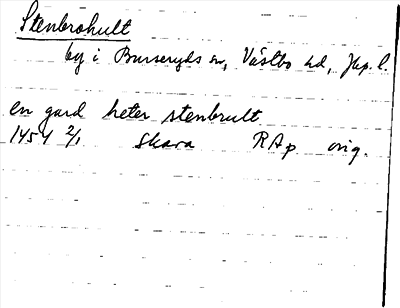 Stenbrohult
by i Burseryds sn, Västbo hd, Jkp. l.
en gard heter stenbrult
1454 2/1 Skara RAp orig.